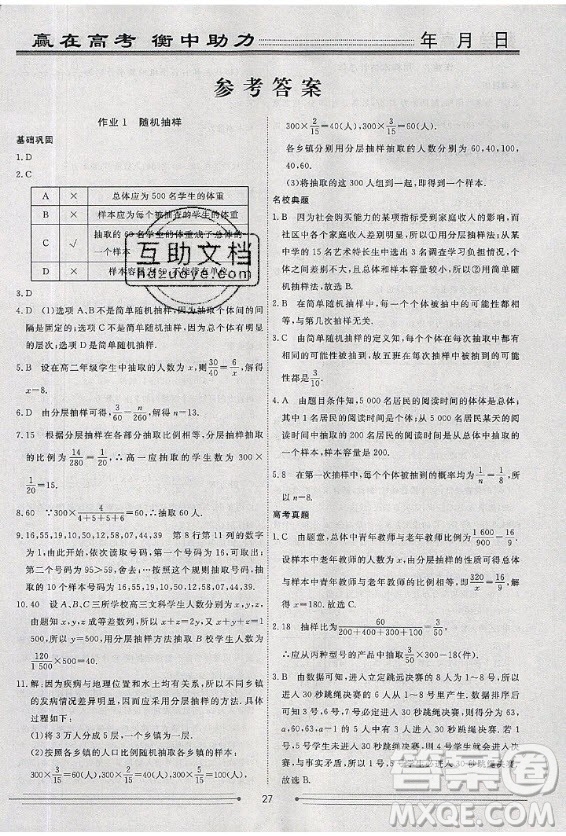 赢在高考 衡中助力
年 月 日
参考答案
作业1 随机抽样
基础巩固
1.D
2.C
A × 总体应为500名学生的体重
B × 样本应为每个被抽查的学生的体重
C √ 抽取的60名学生的体重成了总体的一个样本
D × 样本容量为60,不能带有单位
3.D
4.D (1)选项A,B不是简单随机抽样,因为抽取的个体间的间隔是固定的;选项C不是简单随机抽样,因为总体有明显的层次;选项D是简单随机抽样.
5.B 设在高二年级学生中抽取的人数为x,则30/40=6/x,解得x=8.
6.D 由分层抽样可得,3/60=n/260,解得n=13.
7.15 根据分层抽样各层抽取比例相等,分层抽样抽取的比例为14/280=1/20,∴高一应抽取的学生数为300×1/20=15.
8.60 ∵300×4/(4+5+5+6)=60,∴抽取60人.
9.16,55,19,10,50,12,58,07,44,39 第8行第11列的数字为1,由此开始,依次抽取号码,第一个号码为16,可取出;第二个号码为95>59,舍去.按照这个规则抽取号码,抽取的10个样本号码为16,55,19,10,50,12,58,07,44,39.
10.40 设A,B,C三所学校高三文科学生人数分别为x,y,z,由于x,y,z成等差数列,所以x+z=2y.又x+y+z=1 500,所以y=500,用分层抽样方法抽取B校学生人数为120/1 500×500=40.
11.解:因为疾病与地理位置和水土均有关系,所以不同乡镇的发病情况差异明显,因而采用分层抽样的方法.
具体过程如下:
(1)将3万人分成5层,一个乡镇为一层.
(2)按照各乡镇的人口比例随机抽取各乡镇的样本:
300×3/15=60(人),300×2/15=40(人),
300×5/15=100(人),300×2/15=40(人),
300×3/15=60(人).
各乡镇分别用分层抽样抽取的人数分别为60,40,100,40,60.
(3)将抽取的这300人组到一起,即得到一个样本.
名校典题
1.B 因为社会购买能力的某项指标受到家庭收入的影响,而社区中各个家庭收入差别明显,所以①用分层抽样法;从某中学的15名艺术特长生中选出3名调查学习负担情况,个体之间差别不大,且总体和样本容量较小,所以②用简单随机抽样法.故选B.
2.B 在简单随机抽样中,每个个体被抽中的可能性都相等,与第几次抽样无关.
3.B 由简单随机抽样的定义知,每个个体在每次抽样中都有相同的可能性被抽到,故五班在每次抽样中被抽到的可能性都是3/10.
4.A 由题目条件知,5 000名居民的阅读时间的全体是总体;其中1名居民的阅读时间是个体;从5 000名居民某天的阅读时间中抽取的200名居民的阅读时间是从总体中抽取的一个样本,样本容量是200.
5.8 在第一次抽样中,每个个体被抽到的概率均为1/n=1/8,所以n=8.
高考真题
1.C 由题意,总体中青年教师与老年教师比例为1 600/900=16/9.设样本中老年教师的人数为x,由分层抽样的性质可得总体与样本中青年教师与老年教师的比例相等,即320/x=16/9,解得x=180,故选C.
2.18 抽样比为60/(200+400+300+100)=3/50,
∴应从丙种型号的产品中抽取300×3/50=18(件).
3.B 由数据可知,进入立定跳远决赛的8人为1~8号,所以进入30秒跳绳决赛的6人从1~8号里产生.数据排序后可知第3,6,7号必定进入30秒跳绳决赛,则得分为63,a,60,63,a-1的5人中有3人进入30秒跳绳决赛.若1号,5号学生未进入30秒跳绳决赛,则4号学生就会进入决赛,与事实矛盾,所以1号,5号学生必进入30秒跳绳决赛.故选B.
27
互助文档
huzuoye.com
答案圈
MXQE.COM